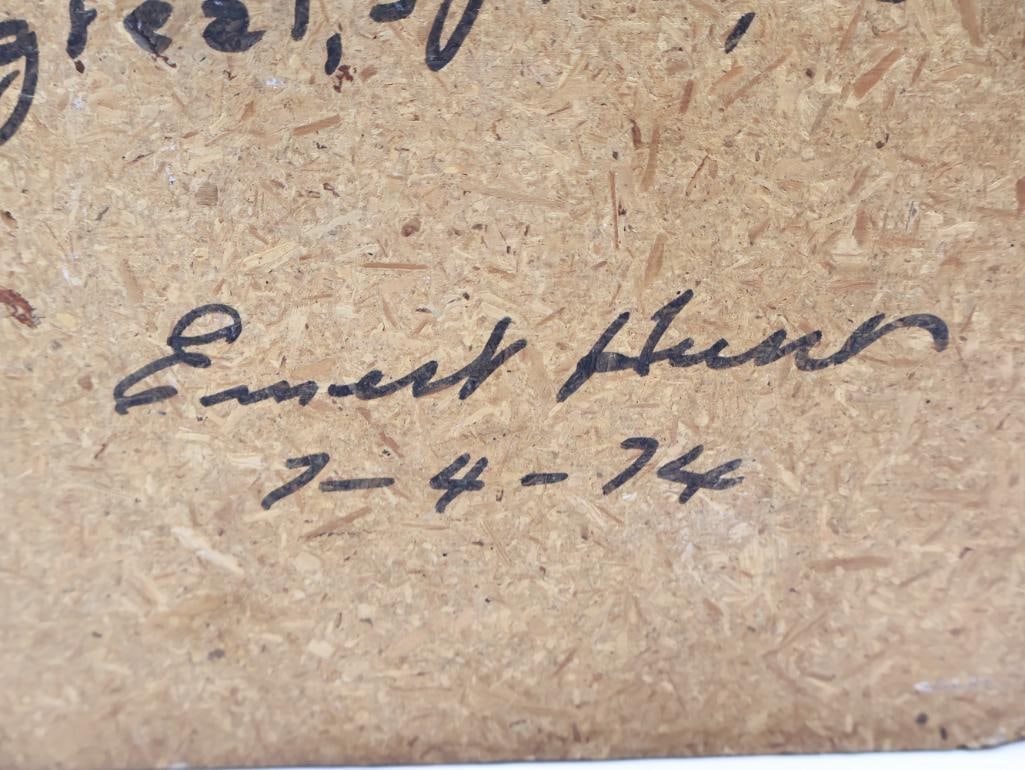 great,
Ernest Hunt
7-4-74